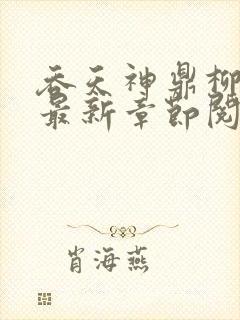 吞天神鼎柳
最新章节阅
肖海燕